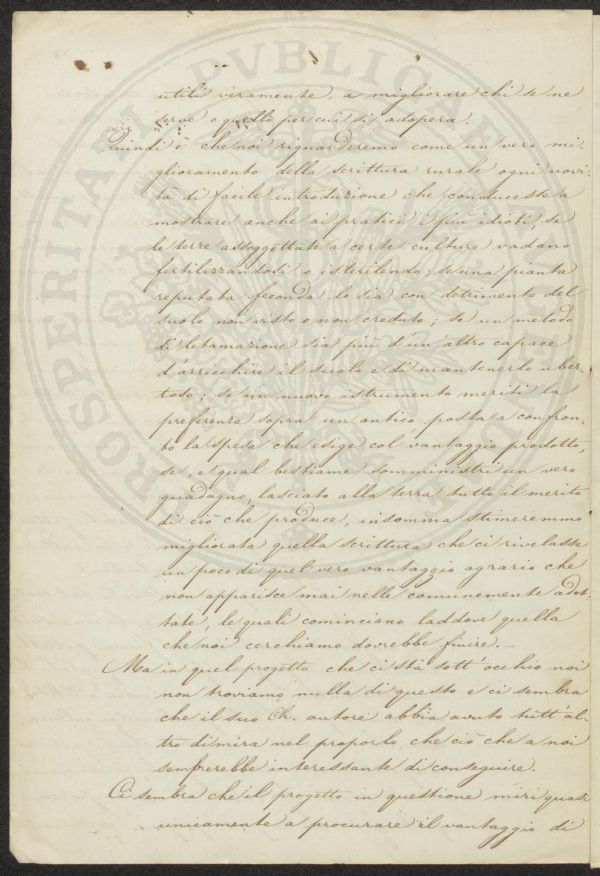 utili veramente, a migliorare chi se ne
serve o quello per cui si adopera.
Quindi è che noi riguarderemo come un vero mi-
glioramento della scrittura rurale ogni novi-
tà di facile introduzione che conducesse a
mostrare anche ai pratici i più idioti, se
le terre assoggettate a certe culture vadano
fertilizzandosi o isterilendo; se una pianta
reputata feconda lo sia con detrimento del
suolo non visto o non creduto; se un metodo
di letamazione sia più d'un altro capace
d'arricchire il suolo e di mantenerlo uber-
toso; se un nuovo istrumento meriti la
preferenza sopra un antico, posta a confron-
to la spesa che esige col vantaggio prodotto,
se, e qual bestiame somministri un vero
guadagno, lasciato alla terra tutto il merito
di ciò che produce, insomma stimeremmo
migliorata quella scrittura che ci rivelasse
un poco di quel vero vantaggio agrario che
non apparisce mai nelle comunemente adot-
tate, le quali cominciano laddove quella
che noi cerchiamo dovrebbe finire. —
Ma in quel progetto che ci sta sott'occhio noi
non troviamo nulla di questo e ci sembra
che il suo Ch. autore abbia avuto tutt'al-
tro di mira nel proporlo, che ciò che a noi
sembrerebbe interessante di conseguire.
Ci sembra che il progetto in questione miri quasi
unicamente a procurare il vantaggio di
PROSPERITATI PUBLICAE